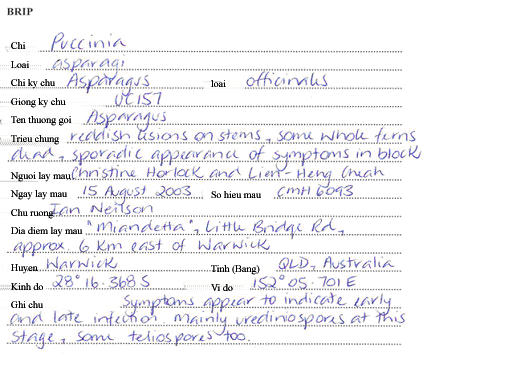 BRIP
Chi Puccinia
Loai asparagi
Chi ky chu Asparagus loai officinalis
Giong ky chu UC157
Ten thuong goi Asparagus
Trieu chung reddish lesions on stems, some whole ferns
dead, sporadic appearance of symptoms in block
Nguoi lay mau Christine Horlock and Lien-Heng Cheah
Ngay lay mau 15 August 2003 So hieu mau CMH 6093
Chu ruong Ian Neilson
Dia diem lay mau "Miandetta", Little Bridge Rd,
approx. 6 km east of Warwick
Huyen Warwick Tinh (Bang) QLD, Australia
Kinh do 28° 16.368 S Vi do 152° 05.701 E
Ghi chu Symptoms appear to indicate early
and late infection mainly urediniospores at this
stage, some teliospores too.